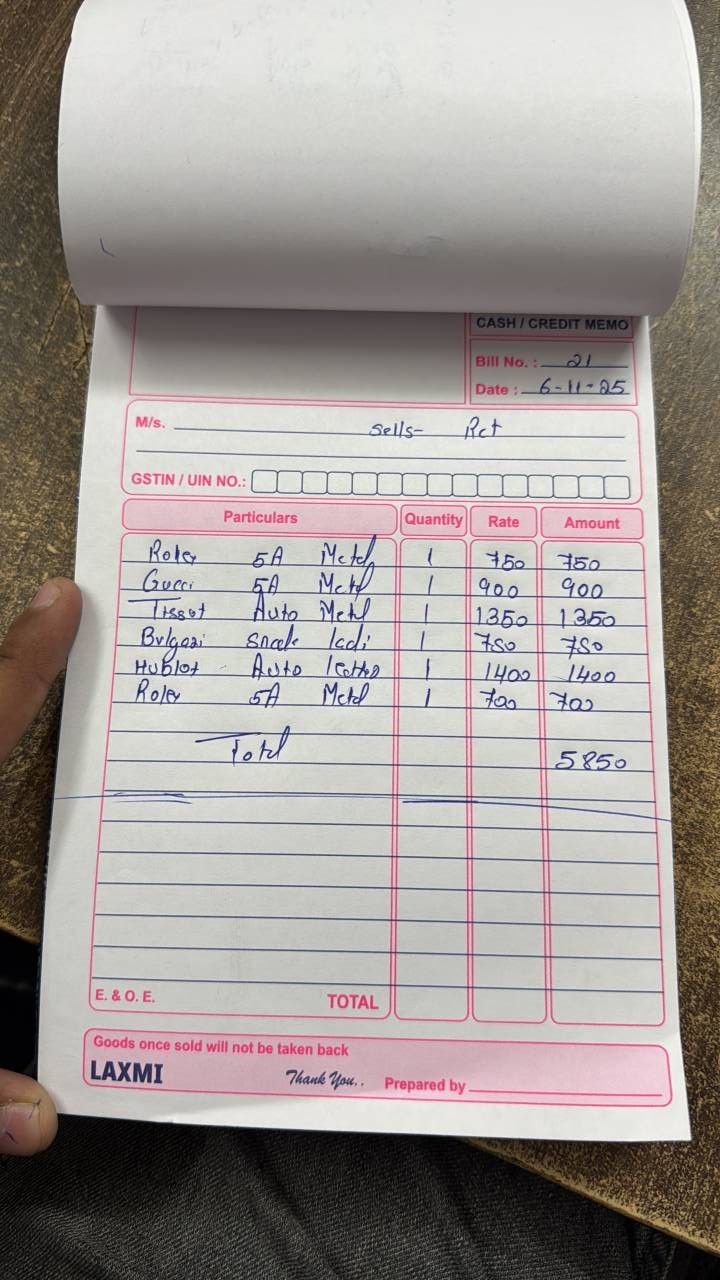 CASH / CREDIT MEMO
Bill No. : 21
Date : 6-11-25
M/s. sells- Rct
GSTIN / UIN NO.:
Particulars Quantity Rate Amount
Rolex 5A Metal 1 750 750
Gucci 5A Metal 1 900 900
Tissot Auto Metal 1 1350 1350
Bvlgari Snack ladi 1 750 750
Hublot Auto 1 1400 1400
Rolex 5A Metal 1 700 700
Total 5850
E. & O. E. TOTAL
Goods once sold will not be taken back
LAXMI Thank You.. Prepared by